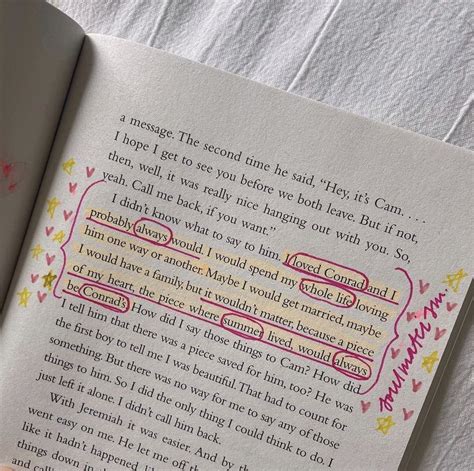 a message. The second time he said, "Hey, it's Cam. . . .
I hope I get to see you before we both leave. But if not,
then, well, it was really nice hanging out with you. So,
yeah. Call me back, if you want."
I didn't know what to say to him. I loved Conrad and I
probably always would. I would spend my whole life loving
him one way or another. Maybe I would get married, maybe
I would have a family, but it wouldn't matter, because a piece
of my heart, the piece where summer lived, would always
be Conrad's. How did I say those things to Cam? How did
I tell him that there was a piece saved for him, too? He was
the first boy to tell me I was beautiful. That had to count for
something. But there was no way for me to say any of those
things to him. So I did the only thing I could think to do. I
just left it alone. I didn't call him back.
With Jeremiah it was easier. And by
went easy on me. He let me off the
like it hadn't happened, li
things down in
and call
soulmates